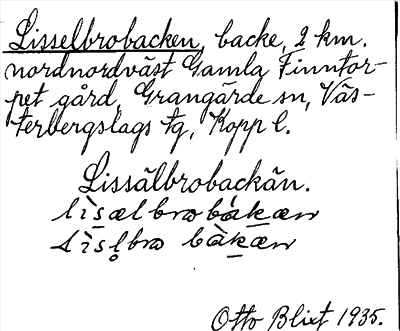 Lisselbrobacken, backe, 2 km.
nordnordväst Gamla Finntor-
pet gård, Grangärde sn, Väs-
terbergslags tg, Kopp l.
Lissälbrobackän.
lìsælbrobákæn
Lìsl̥bro bàkæn
Otto Blixt 1935.